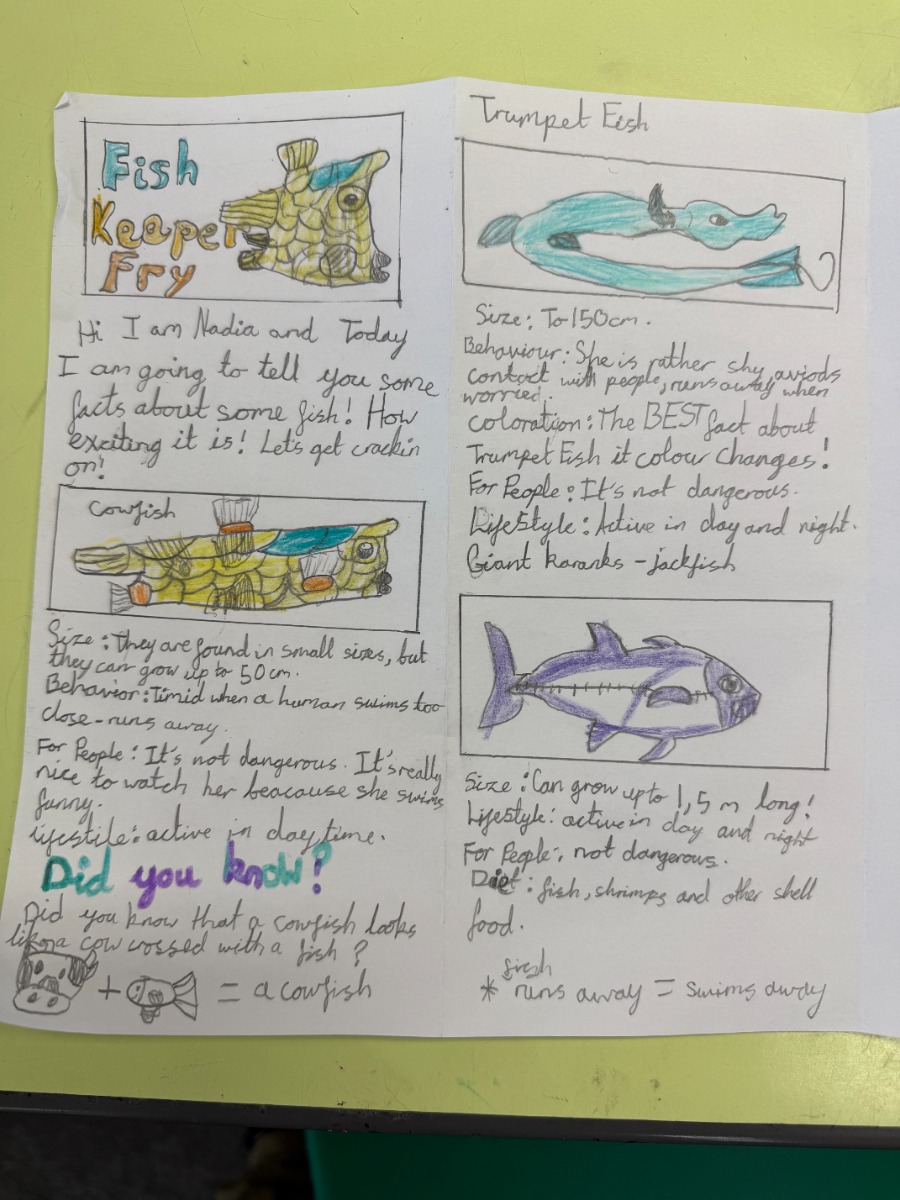 Fish
Keeper
Fry
Hi I am Nadia and Today
I am going to tell you some
facts about some fish! How
exciting it is! Let's get crackin
on!
Cowfish
Size: They are found in small sizes, but
they can grow up to 50 cm.
Behavior: Timid when a human swims too
close - runs away.
For People: It's not dangerous. It's really
nice to watch her beacause she swims
funny.
lifestile: active in day time.
Did you know?
Did you know that a cowfish looks
like a cow crossed with a fish?
+ = a cowfish
Trumpet Fish
Size: To 150cm.
Behaviour: She is rather shy, aviods
contact with people, runs away when
worried.
Coloration: The BEST fact about
Trumpet Fish it colour changes!
For People: It's not dangerous.
LifeStyle: Active in day and night.
Giant karanks - jackfish
Size: Can grow up to 1,5 m long!
Lifestyle: active in day and night
For People: not dangerous.
Diet: fish, shrimps and other shell
food.
* runs away = swims away